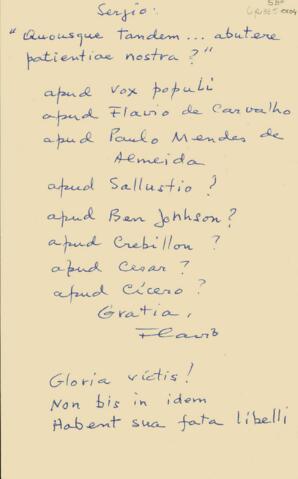 Sergio:
"Quousque tandem... abutere
patientiae nostra?"
apud Vox populi
apud Flavio de Carvalho
apud Paulo Mendes de
Almeida
apud Sallustio ?
apud Ben Johhson ?
apud Crebillon ?
apud Cesar ?
apud Cícero ?
Gratia,
Flavio
Gloria victis!
Non bis in idem
Habent sua fata libelli